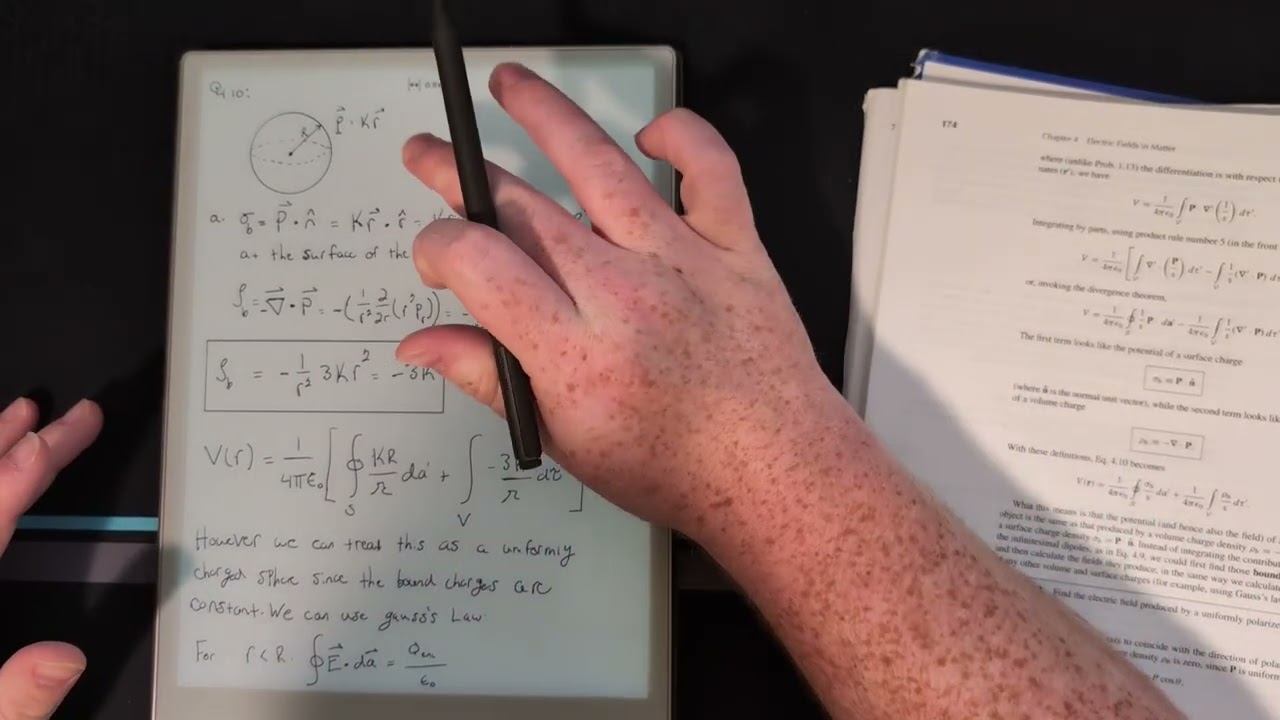 Q4.10:
R
P⃗ = Kr⃗
a. σb = P⃗ · n̂ = Kr⃗ · r̂ =
at the surface of the
ρb = -∇⃗ · P⃗ = -(1/r² ∂/∂r (r² Pr)) = -
ρb = -1/r² 3Kr² = -3K
V(r) = 1/4πε₀ [ ∮S KR/𝓇 da' + ∫V -3 /𝓇 dτ ]
However we can treat this as a uniformly
charged sphere since the bound charges are
constant. We can use gauss's Law
For r < R. ∮ E⃗ · da⃗ = Qen/ε₀
174
Chapter 4 Electric Fields in Matter
where (unlike Prob. 1.13) the differentiation is with respect
nates (r'), we have
V = 1/4πε₀ ∫V P · ∇' (1/𝓇) dτ'.
Integrating by parts, using product rule number 5 (in the front
V = 1/4πε₀ [ ∫V ∇' · (P/𝓇) dτ' - ∫V 1/𝓇 (∇' · P) d
or, invoking the divergence theorem,
V = 1/4πε₀ ∮S 1/𝓇 P · da' - 1/4πε₀ ∫V 1/𝓇 (∇' · P) dτ
The first term looks like the potential of a surface charge
σb = P · n̂
(where n̂ is the normal unit vector), while the second term looks
of a volume charge
ρb = -∇ · P.
With these definitions, Eq. 4.10 becomes
V(r) = 1/4πε₀ ∮S σb/𝓇 da' + 1/4πε₀ ∫V ρb/𝓇 dτ'.
What this means is that the potential (and hence also the field) of
object is the same as that produced by a volume charge density ρb =
a surface charge density σb = P · n̂. Instead of integrating the
the infinitesimal dipoles, as in Eq. 4.9, we could first find those
and then calculate the fields they produce, in the same way we
any other volume and surface charges (for example, using Gauss's
Find the electric field produced by a uniformly
axis to coincide with the direction of
density ρb is zero, since P is
P cosθ,